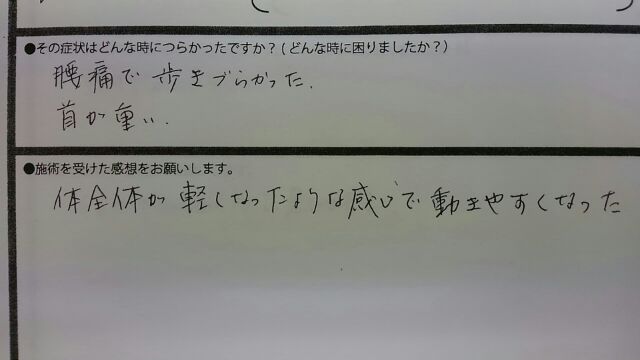 ●その症状はどんな時につらかったですか？(どんな時に困りましたか？)
腰痛で歩きづらかった.
首が重い.
●施術を受けた感想をお願いします。
体全体が軽くなったような感じで動きやすくなった